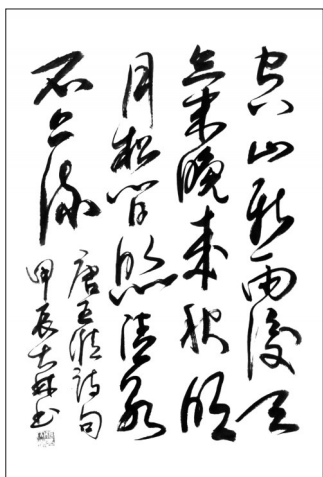 空山新雨後天
氣晚来秋明
月松间照清泉
石上流
唐王维詩句
甲辰书